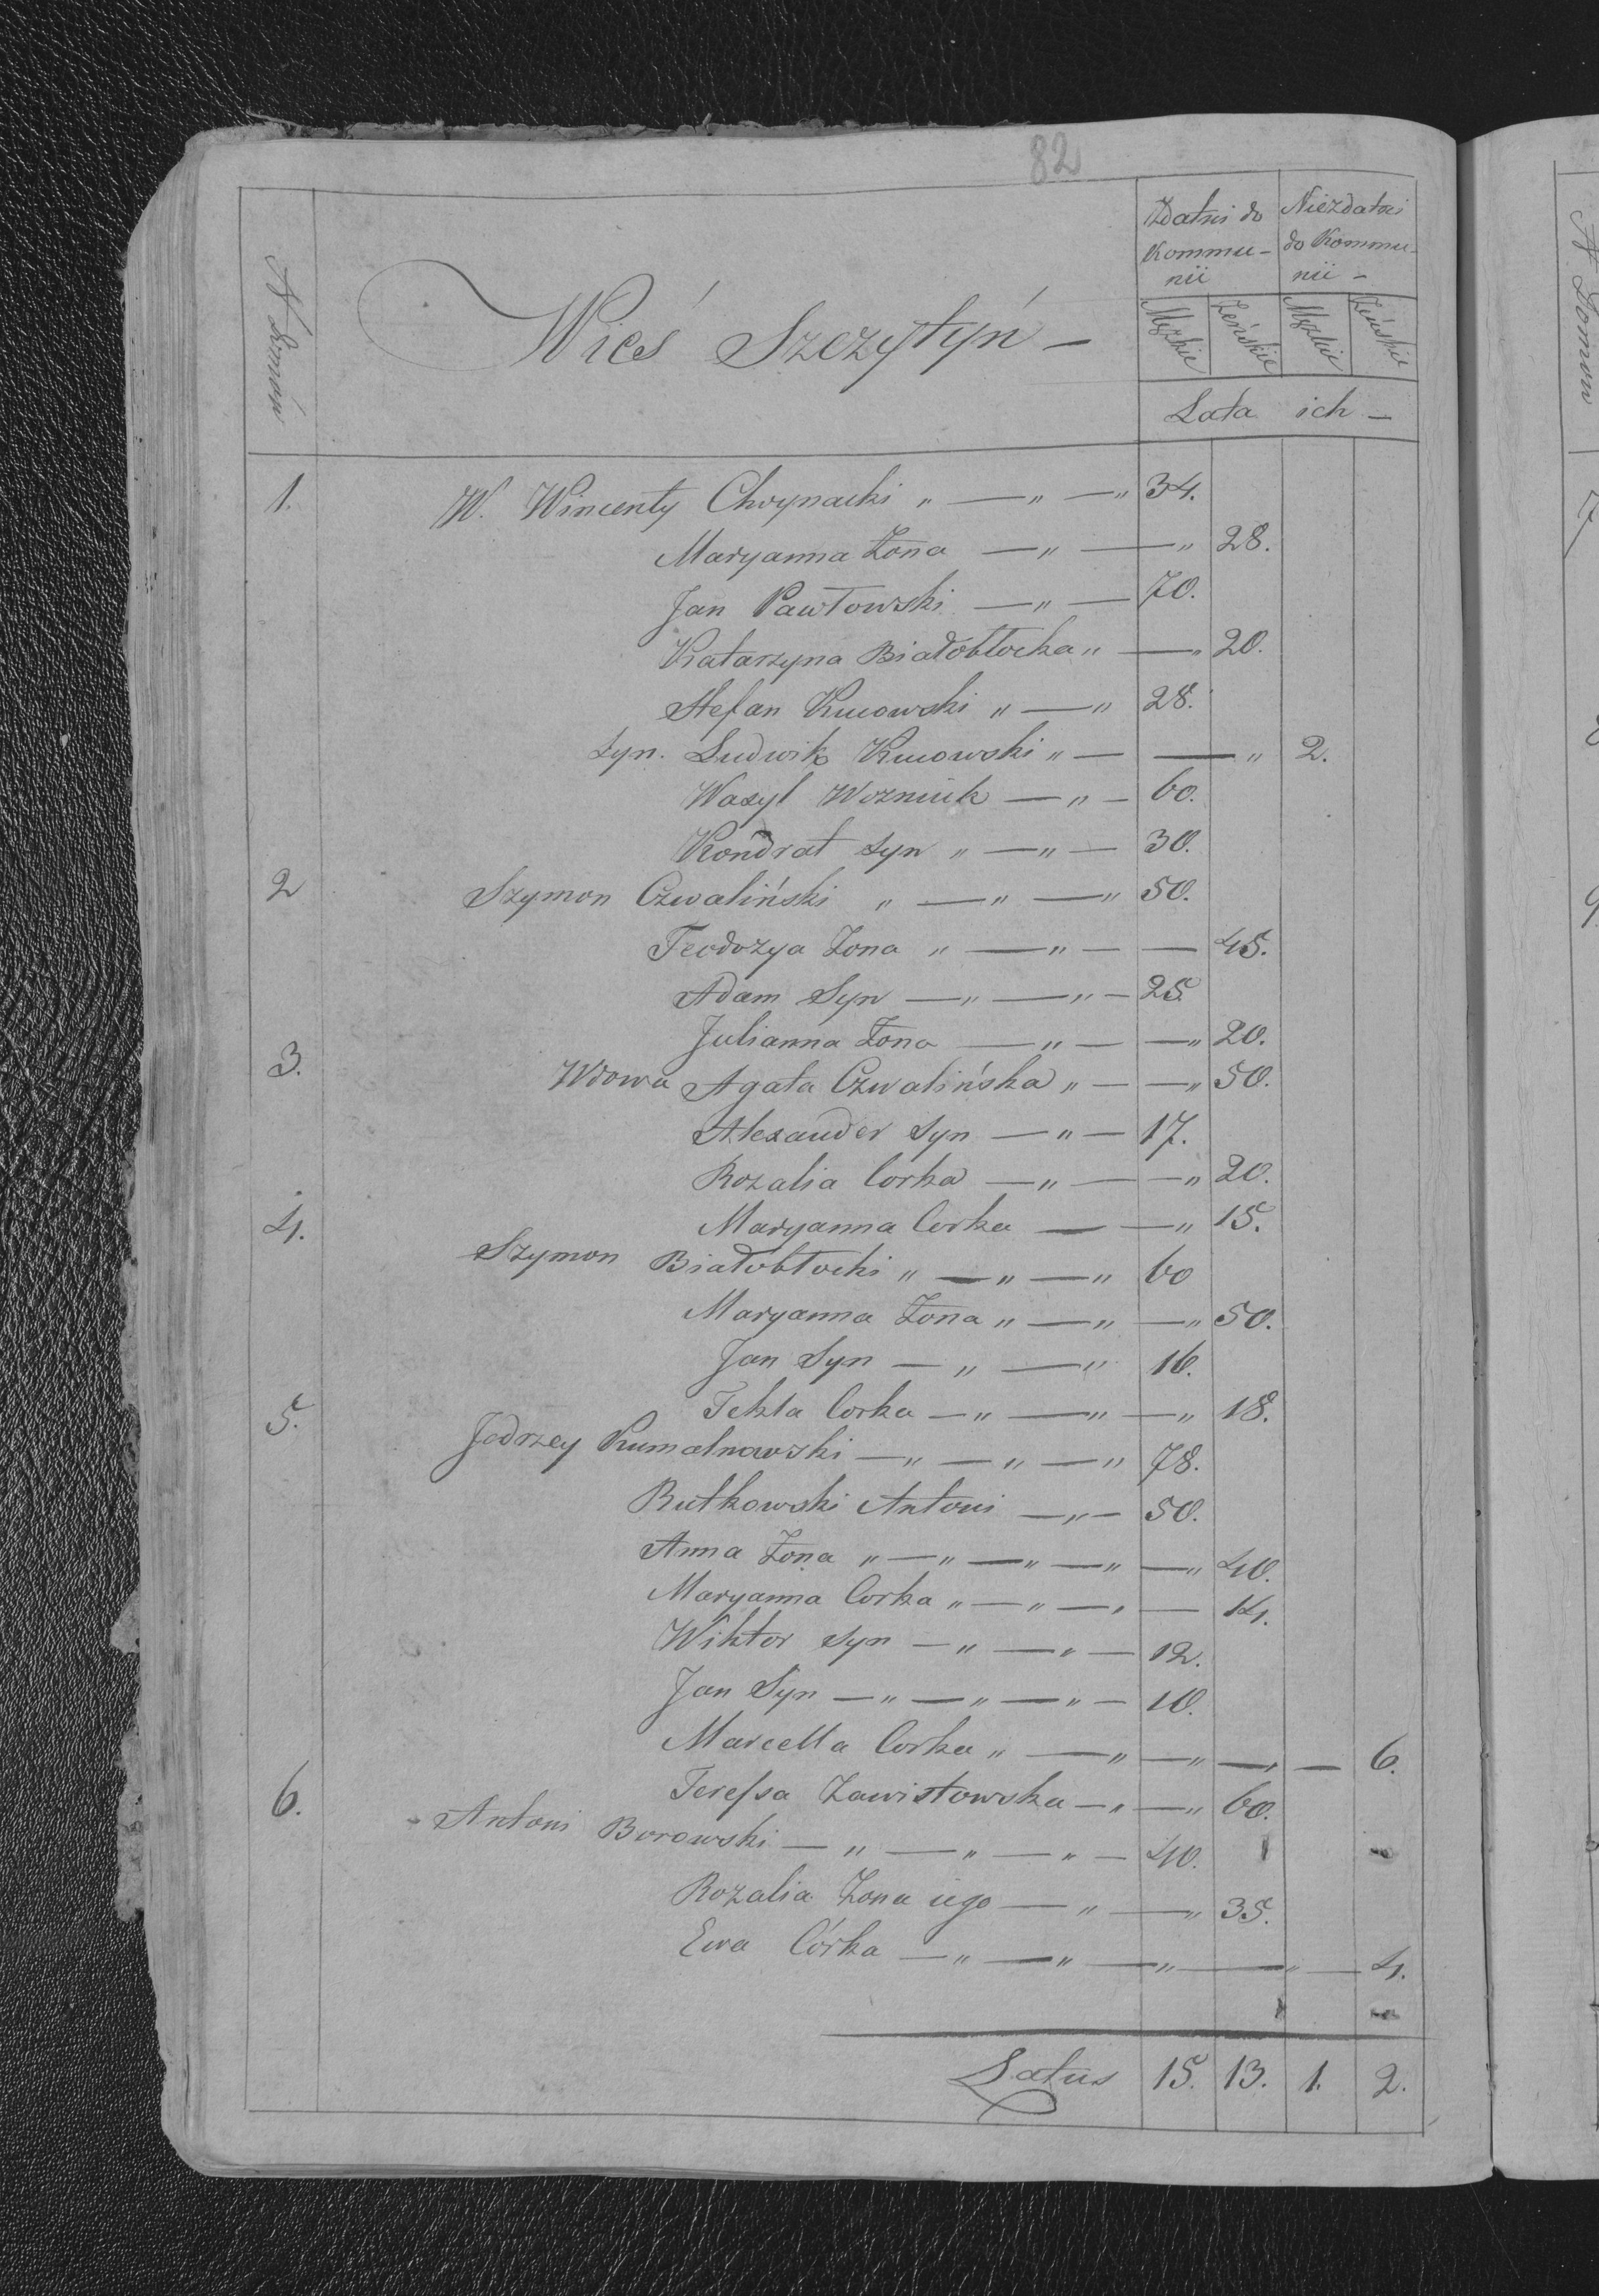 82
N Domów
Wieś Szczytyń –
Zdatni do Kommu-nii
Niezdatni do Kommu-nii –
Męzkie Żeńskie Męzkie Żeńskie
Lata ich –
1. W. Wincenty Choynacki „ — „ — „ 34.
Maryanna Żona — „ — „ 28.
Jan Pawłowski — „ — 70.
Katarzyna Białobłocka „ — „ 20.
Stefan Kucowski „ — „ 28.
Syn. Ludwik Kucowski „ — — „ 2.
Wasyl Wozniuk — „ — 60.
Kondrat syn „ — „ — 30.
2 Szymon Czwaliński „ — „ — „ 50.
Teodozya Żona „ — „ — — 45.
Adam Syn — „ — „ — 25
Julianna Żona — „ — — „ 20.
3. Wdowa Agata Czwalińska „ — — „ 50.
Alexander Syn — „ — 17.
Rozalia Corka — „ — — „ 20.
Maryanna Corka — — „ 15.
4. Szymon Białobłocki „ — „ — „ 60
Maryanna Żona „ — „ — „ 50.
Jan Syn — „ — „ 16.
Tekla Corka — „ — „ — „ 18.
5. Jedrzey Rumelnowski — „ — „ — „ 78.
Rutkowski Antoni — „ — 50.
Anna Żona „ — „ — „ — „ — „ 40.
Maryanna Corka „ — „ — „ — 14.
Wiktor syn — „ — „ — 12.
Jan Syn — „ — „ — „ — 10.
Marcella Corka „ — „ — „ — „ — 6.
Teressa Zawistowska — „ — „ 60.
6. Antoni Borowski — „ — „ — „ — 40.
Rozalia Żona iego — „ — „ 35.
Ewa Córka — „ — „ — „ — „ — 4.
Latus 15. 13. 1. 2.
N Domów